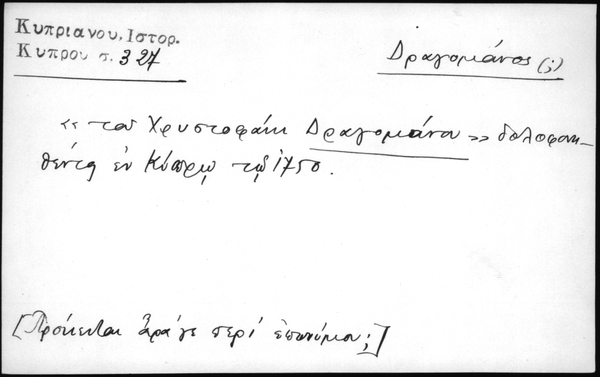 Κυπριανου, Ιστορ.
Κυπρου σ. 327
Δραγομάνος (;)
« του Χρυστοφάκη Δραγομάνου » δολοφονη-
θέντος ἐν Κύπρῳ τῷ 1750.
[Πρόκειται ἆρά γε περί ἐπωνύμου;]